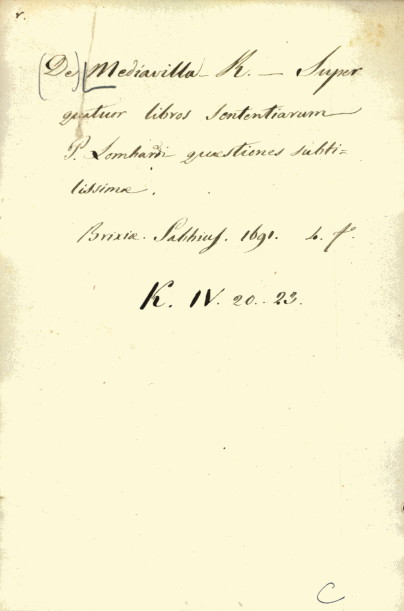 r.
(De) Mediavilla - R. - Super
quatuor libros sententiarum
P. Lombardi quæstiones subti=
lissimæ.
Brixiæ. Sabbius. 1691. 4. fo.
K. IV. 20-23.
C